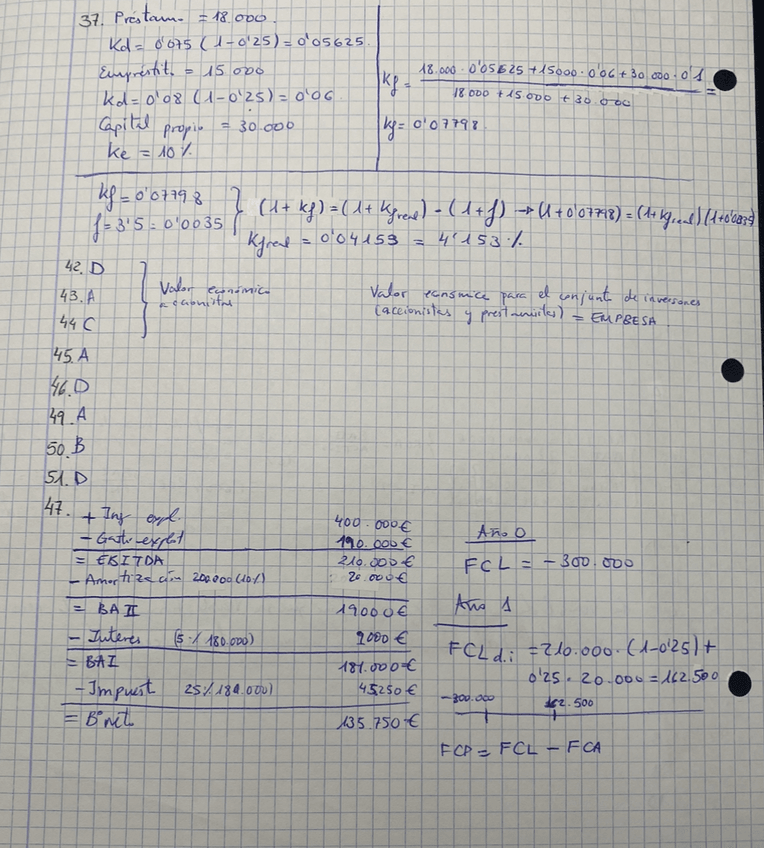 37. Préstam. = 18.000.
Kd = 0'075 (1-0'25) = 0'05625
Empréstit. = 15 000
Kd = 0'08 (1-0'25) = 0'06
Capital propio = 30.000
Ke = 10%
Kf = 18.000 · 0'05625 + 15000 · 0'06 + 30.000 · 0'1 / 18 000 + 15 000 + 30.000 =
Kf = 0'07798
Kf = 0'07798
f = 3'5 = 0'0035
(1 + Kf) = (1 + Kf real) - (1 + f) → (1 + 0'07798) = (1 + Kf real) (1 + 0'035)
Kf real = 0'04153 = 4'153%
42. D
43. A
44 C
Valor económico
accionistas
Valor económico para el conjunto de inversores
(accionistas y prestamistas) = EMPRESA
45. A
46. D
49. A
50. B
51. D
47. + Ing expl. 400.000€
- Gasto explot 190.000€
= EBITDA 210.000€
- Amortización 200000 (10%) 20.000€
= BAII 19000 0€
- Interes (5% 180.000) 9000€
= BAI 181.000€
- Impuest 25% 181.000) 45250€
= Bº net. 135.750€
Año 0
FCL = -300.000
Año 1
FCL d.i = 210.000 · (1-0'25) +
0'25 · 20.000 = 162.500
-300.000 162.500
FCP = FCL - FCA